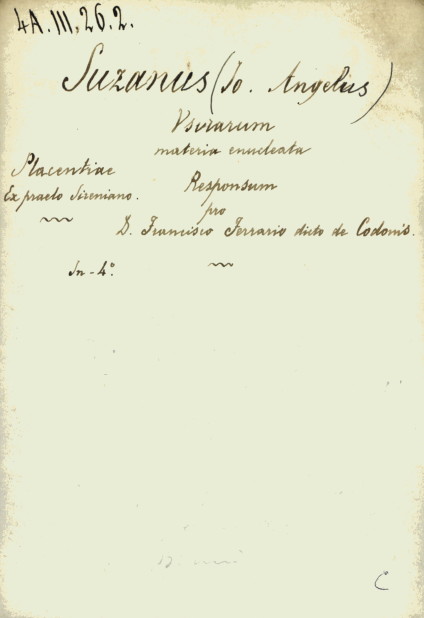 4A.III.26.2.
Suzanus (Jo. Angelus)
Vsurarum
materia enucleata
Placentiae
Ex praelo Sireniano.
Responsum
pro
D. Francisco Ferrario dicto de Codonis.
In-4°.
C